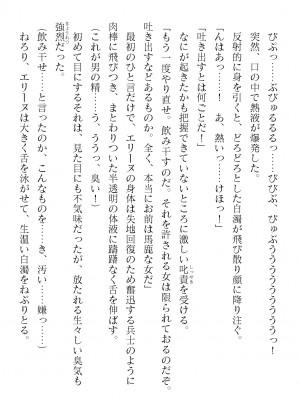 ぴぷっ……ぶびゅるるるっ……びびぶ、びゅぷうううううううっ！
突然、口の中で熱液が爆発した。
「んはあっ……！　あ、熱い……けほっ！」
反射的に身を引くと、どろどろとした白濁が飛び散り顔に降り注ぐ。
「吐き出すとは何ごとだ！」
なにが起きたかも把握できていないところに激しい叱責を受ける。
「もう一度やり直せ。飲み干すのだ。それを許される女は限られておるのだぞ。
吐き出すなどあるものか。全く、本当にお前は馬鹿な女だ」
最初のひと言だけで、エリーヌの身体は失地回復のため奮迅する兵士のように
肉棒に飛びつき、まとわりついた半透明の体液に躊躇なく舌を伸ばす。
（これが男の精……う、ううっ、臭い！）
初めて目にするそれは、見た目にも不気味だったが、放たれる生々しい臭気も
強烈だった。
（飲み干せ……と言ったのか、こんなものを……き、汚い……嫌っ……）
ねろり、エリーヌは大きく舌を泳がせて、生温い白濁をねぶりとる。